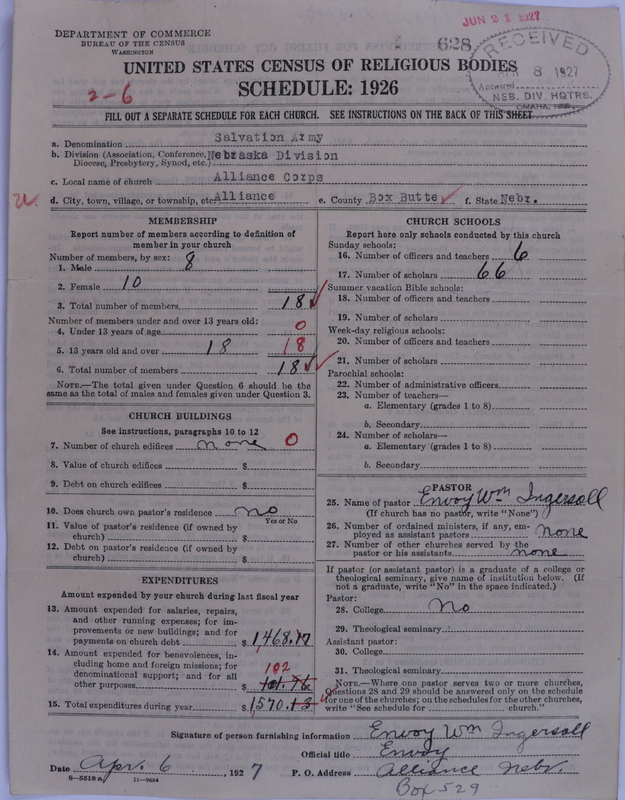 JUN 21 1927
DEPARTMENT OF COMMERCE
BUREAU OF THE CENSUS
WASHINGTON
628
RECEIVED
8 1927
Answered
NEB. DIV. HQTRS.
OMAHA, NEBR.
UNITED STATES CENSUS OF RELIGIOUS BODIES
SCHEDULE: 1926
2-6
FILL OUT A SEPARATE SCHEDULE FOR EACH CHURCH. SEE INSTRUCTIONS ON THE BACK OF THIS SHEET
a. Denomination Salvation Army
b. Division (Association, Conference, Nebraska Division
Diocese, Presbytery, Synod, etc.)
c. Local name of church Alliance Corps
d. City, town, village, or township, etc. Alliance e. County Box Butte f. State Nebr.
MEMBERSHIP
Report number of members according to definition of
member in your church
Number of members, by sex:
1. Male 8
2. Female 10
3. Total number of members 18
Number of members under and over 13 years old:
4. Under 13 years of age 0
5. 13 years old and over 18 18
6. Total number of members 18
NOTE.—The total given under Question 6 should be the
same as the total of males and females given under Question 3.
CHURCH BUILDINGS
See instructions, paragraphs 10 to 12
7. Number of church edifices none 0
8. Value of church edifices $
9. Debt on church edifices $
10. Does church own pastor's residence no
Yes or No
11. Value of pastor's residence (if owned by
church) $
12. Debt on pastor's residence (if owned by
church) $
EXPENDITURES
Amount expended by your church during last fiscal year
13. Amount expended for salaries, repairs,
and other running expenses; for im-
provements or new buildings; and for
payments on church debt $ 1,468.17
14. Amount expended for benevolences, in-
cluding home and foreign missions; for
denominational support; and for all
other purposes $ 102
101.96
15. Total expenditures during year $ 1,570.13
CHURCH SCHOOLS
Report here only schools conducted by this church
Sunday schools:
16. Number of officers and teachers 6
17. Number of scholars 66
Summer vacation Bible schools:
18. Number of officers and teachers
19. Number of scholars
Week-day religious schools:
20. Number of officers and teachers
21. Number of scholars
Parochial schools:
22. Number of administrative officers
23. Number of teachers—
a. Elementary (grades 1 to 8)
b. Secondary
24. Number of scholars—
a. Elementary (grades 1 to 8)
b. Secondary
PASTOR
25. Name of pastor Envoy Wm Ingersoll
(If church has no pastor, write "None")
26. Number of ordained ministers, if any, em-
ployed as assistant pastors none
27. Number of other churches served by the
pastor or his assistants none
If pastor (or assistant pastor) is a graduate of a college or
theological seminary, give name of institution below. (If
not a graduate, write "No" in the space indicated.)
Pastor:
28. College No
29. Theological seminary
Assistant pastor:
30. College
31. Theological seminary
NOTE.—Where one pastor serves two or more churches,
Questions 28 and 29 should be answered only on the schedule
for one of the churches; on the schedules for the other churches,
write "See schedule for church."
Signature of person furnishing information Envoy Wm Ingersoll
Official title Envoy
Date Apr. 6, 1927 P. O. Address Alliance Nebr.
8-5518a 11-9054
Box 529